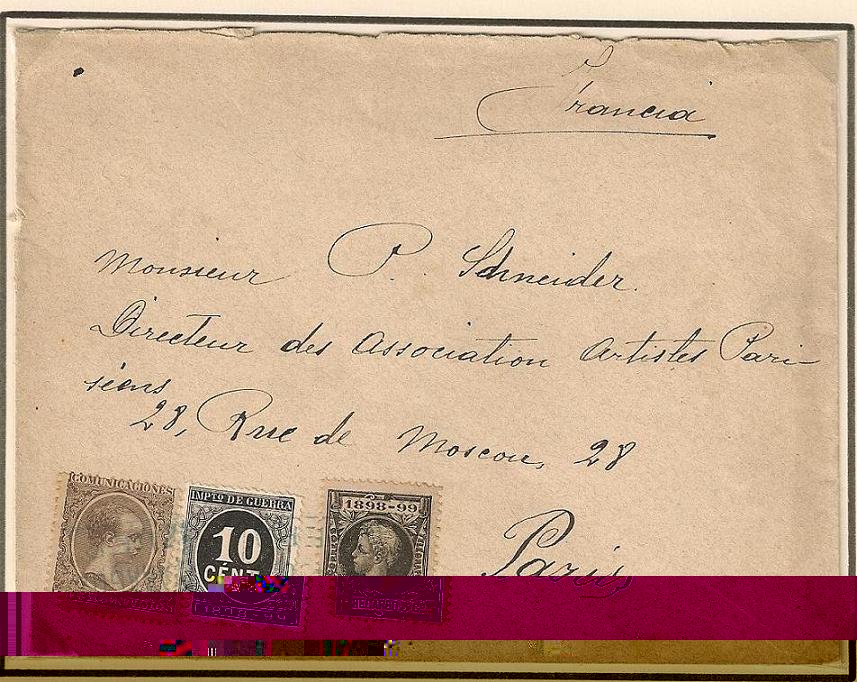 Francia
Monsieur P. Schneider.
Directeur des Association Artistes Pari-
siens
28, Rue de Moscou, 28
Paris
COMUNICACIONES
IMPTO DE GUERRA
10
CÉNT
1898-99